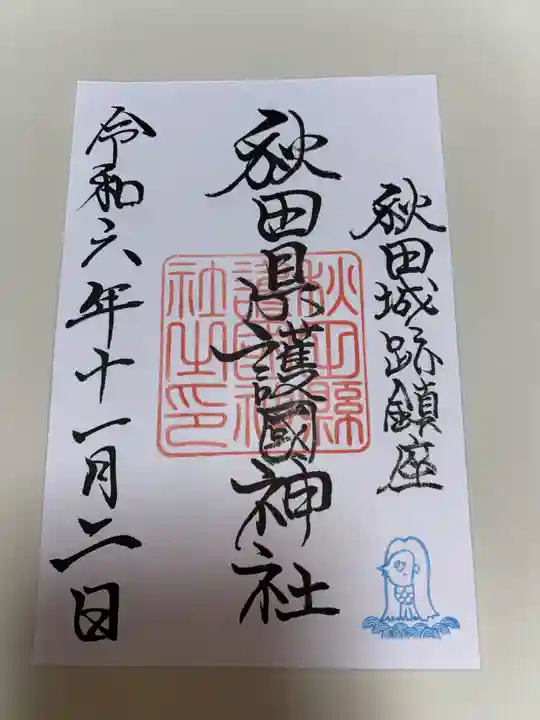 秋田城跡鎮座
秋田県護國神社
秋田縣
護國神
社之印
令和六年十一月二日